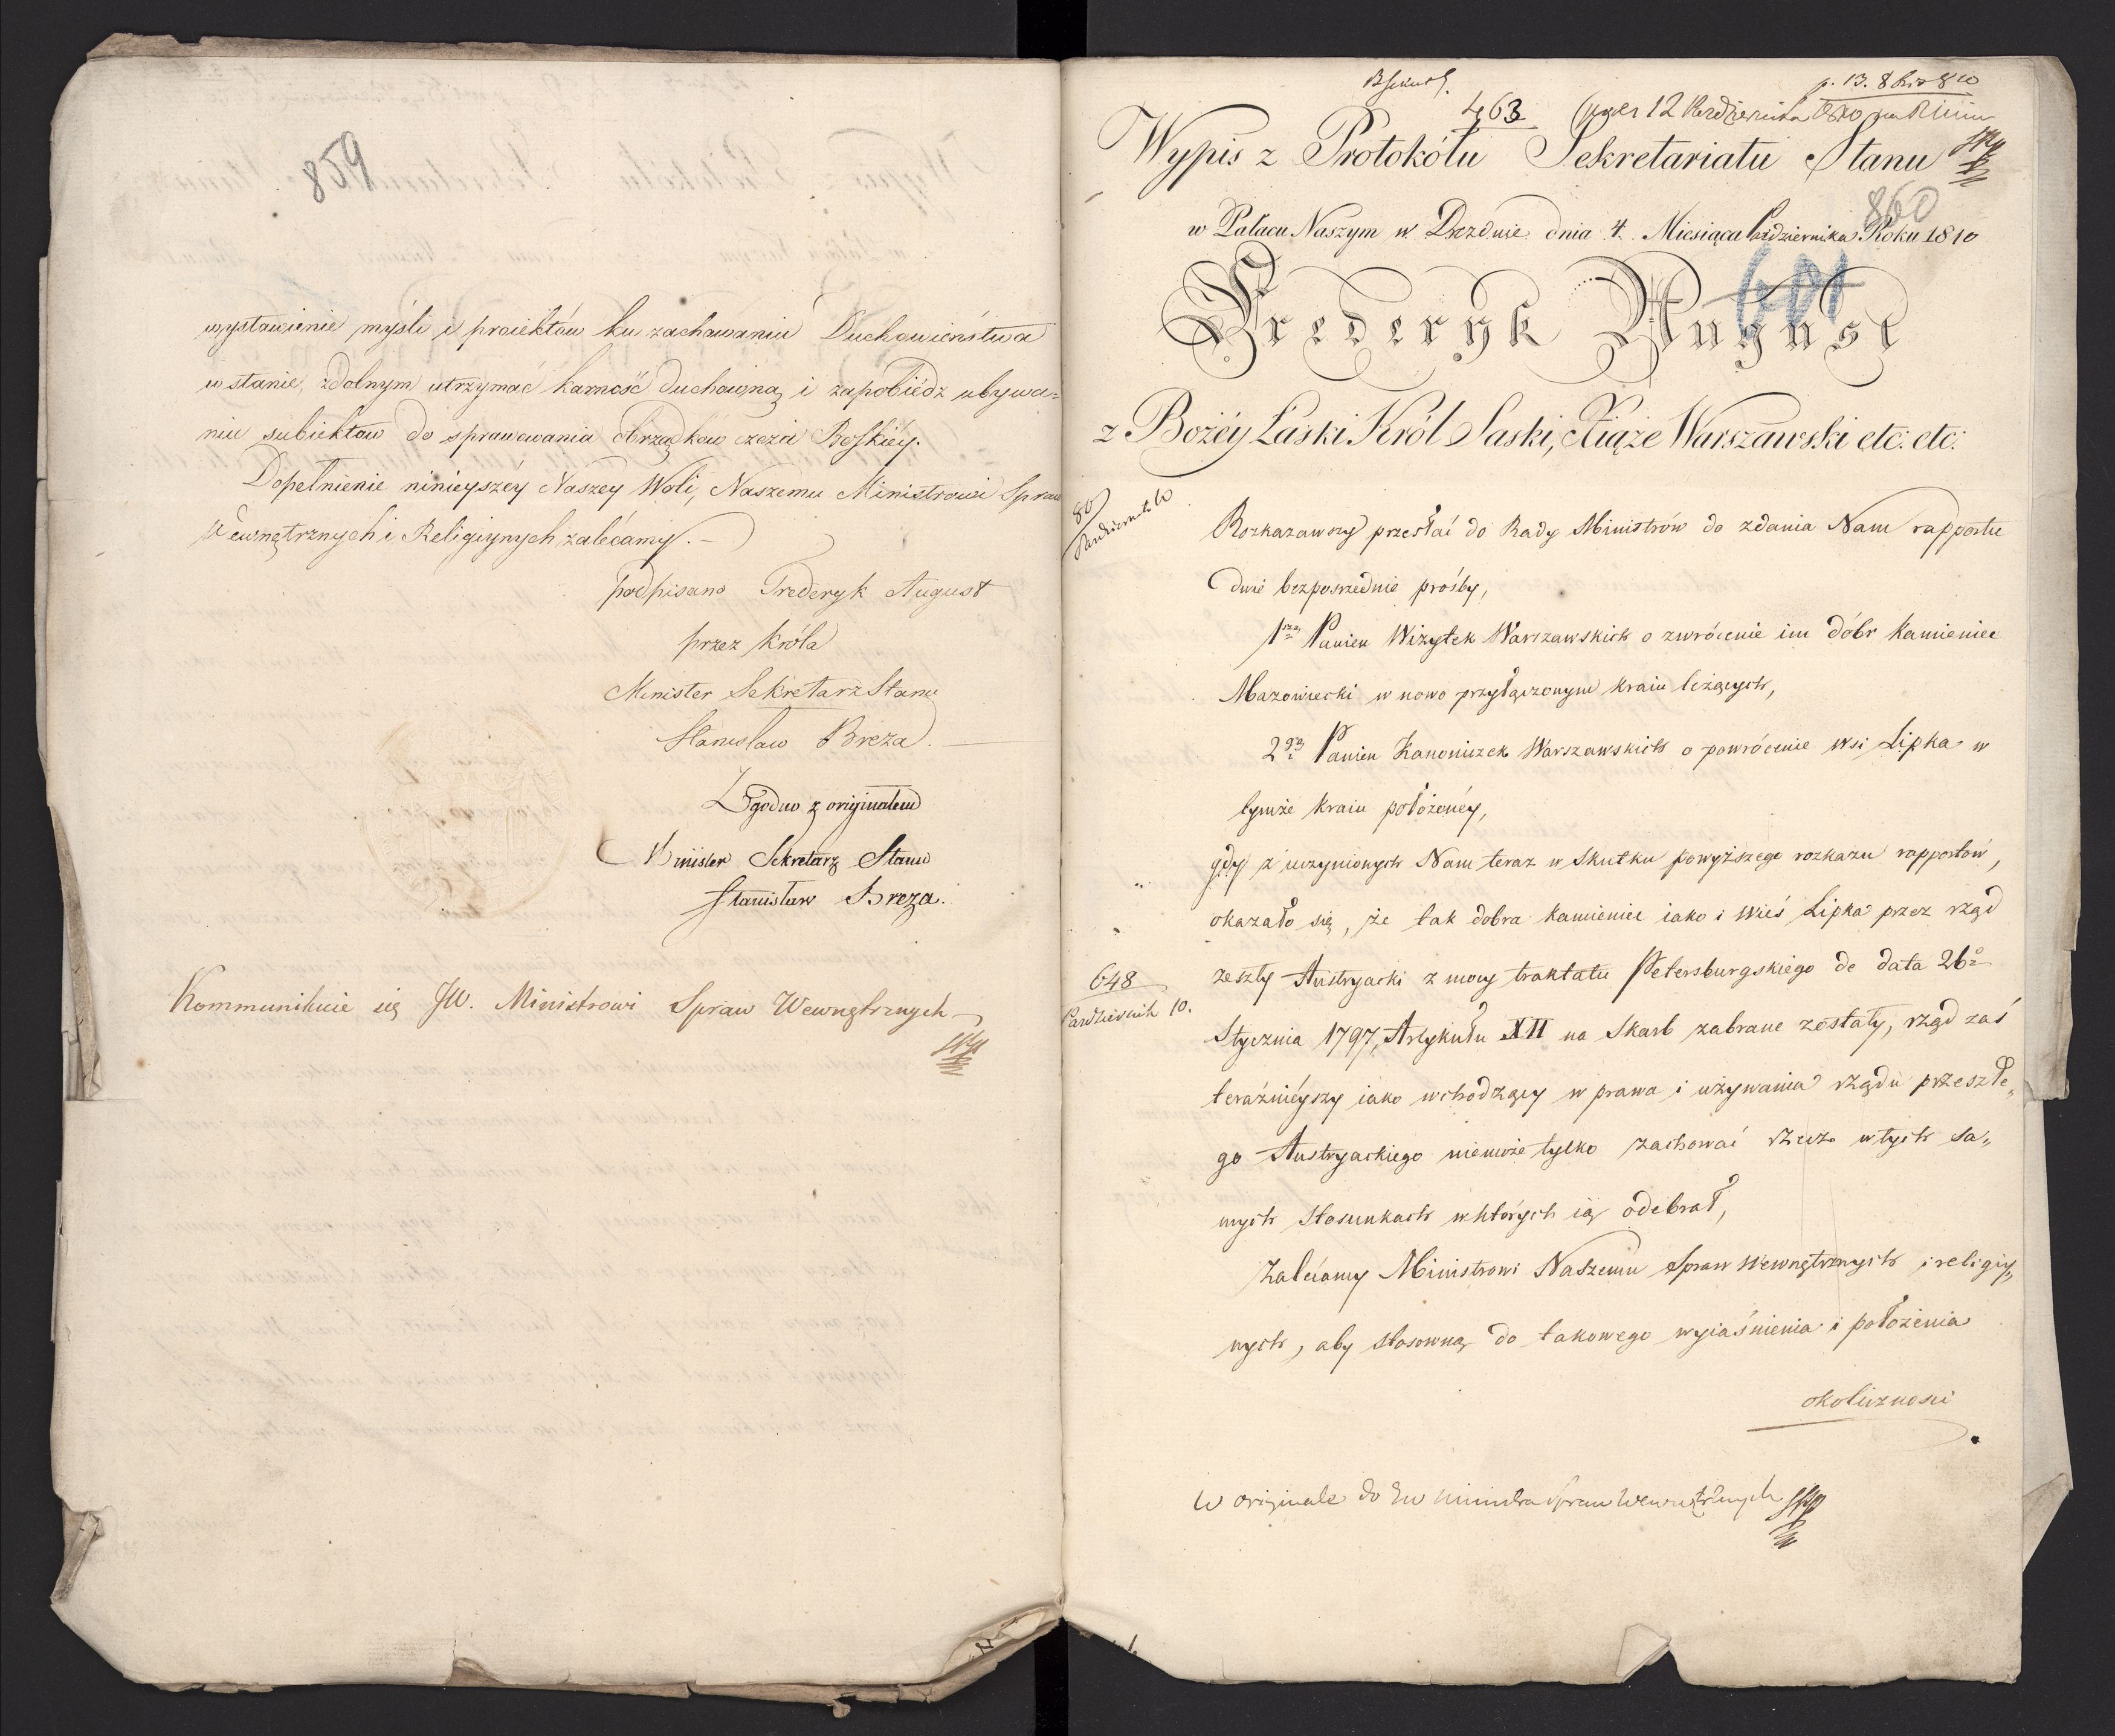 859
wystawienie myśli i proiektów ku zachowaniu Duchowieństwa
w stanie, zdolnym utrzymać karność duchowną i zapobiédz ubywa=
niu subiektow do sprawowania obrządków czcia Boskiéy.
Dopełnienie ninieyszéy Naszey Woli, Naszemu Ministrowi Spraw
Wewnętrznych i Religiynych zalécamy. –
podpisano Frederyk August
przez Króla
Minister Sekretarz Stanu
Stanisław Breza.
Zgodno z originałem
Minister Sekretarz Stanu
Stanisław Breza.
Kommunikuie się JW. Ministrowi Spraw Wewnętrznych
463
12 Października 1810
Wypis z Protokółu Sekretariatu Stanu
860
w Pałacu Naszym w Dreznie dnia 4. Miesiąca Października Roku 1810
601
Frederyk August
z Bożéy Łaski Król Saski, Xiąże Warszawski etc: etc:
80
Października 10
Rozkazawszy przesłać do Rady Ministrów do zdania Nam rapportu
dwie bezpośrednie prośby,
1sza Panien Wizytek Warszawskich o zwrócenie im dóbr Kamieniec
Mazowiecki w nowo przyłączonym kraiu leżących,
2ga Panien Kanoniczek Warszawskich o powrócenie wsi Lipka w
tymże kraiu położonéy,
gdy z uczynionych Nam teraz w Skutku powyższego rozkazu rapportów,
okazało się, że tak dobra Kamieniec iako i wieś Lipka przez rząd
648
Październik 10.
zeszły Austryacki z mocy traktatu Petersburgskiego de data 26o
Stycznia 1797, Artykułu XII na Skarb zabrane zostały, rząd zaś
teraźniéyszy iako wchodzący w prawa i używania rządu przeszłe„
go Austryackiego niemoże tylko zachować rzecz w tych sa„
mych stosunkach w których ią odebrał,
Zalécamy Ministrowi Naszemu Spraw Wewnętrznych i religiy„
nych, aby stosowną do takowego wyiaśnienia i położenia
okoliczności
W originale do JW Ministra Spraw Wewnętrznych